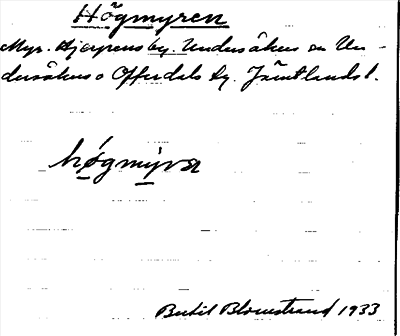 Högmyren
Myr. Hjerpens by. Undersåkers sn Un-
dersåkers o Offerdals tg. Jämtlands l.
högmýra
Bertil Blomstrand 1933